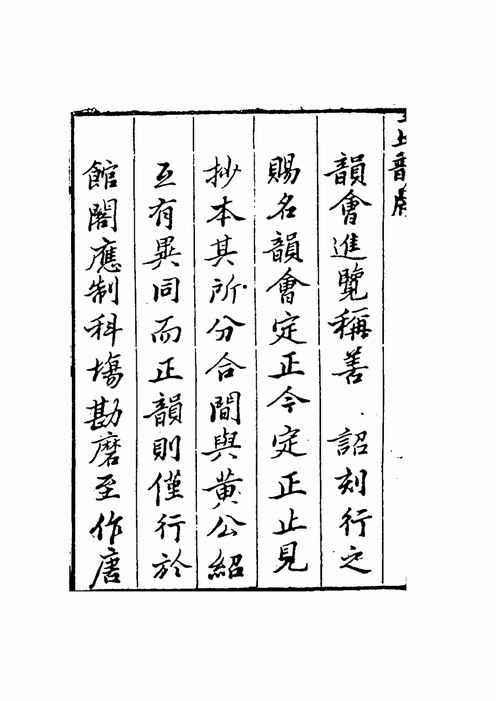 韻會進覽稱善　詔刻行之
賜名韻會定正今定正止見
抄本其所分合間與黄公紹
互有異同而正韻則僅行於
館閣應制科場勘磨至作唐